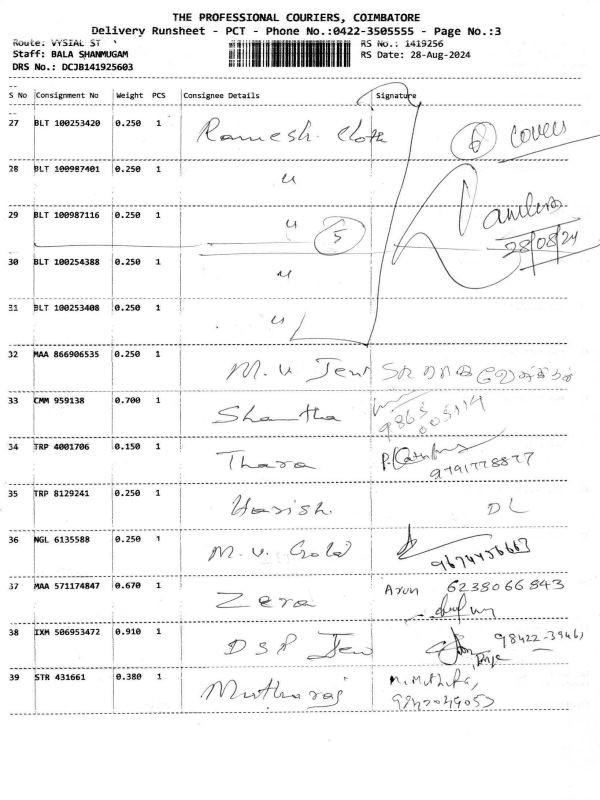 THE PROFESSIONAL COURIERS, COIMBATORE
Delivery Runsheet - PCT - Phone No.:0422-3505555 - Page No.:3
Route: VYSIAL ST
RS No.: 1419256
Staff: BALA SHANMUGAM
RS Date: 28-Aug-2024
DRS No.: DCJB141925603
S No Consignment No Weight PCS Consignee Details Signature
27 BLT 100253420 0.250 1 Ramesh. Cloth
6 covers
28 BLT 100987401 0.250 1 "
29 BLT 100987116 0.250 1 "
5
28/08/24
30 BLT 100254388 0.250 1 "
31 BLT 100253408 0.250 1 "
32 MAA 866906535 0.250 1 M. V Jew
33 CMM 959138 0.700 1 Shantha
34 TRP 4001706 0.150 1 Thara
9791778877
35 TRP 8129241 0.250 1 Harish. DL
36 NGL 6135588 0.250 1 M. V. Gold
37 MAA 571174847 0.670 1 Zera Arun 6238066843
38 IXM 506953472 0.910 1 D S P Jew
39 STR 431661 0.380 1 Mutharaj